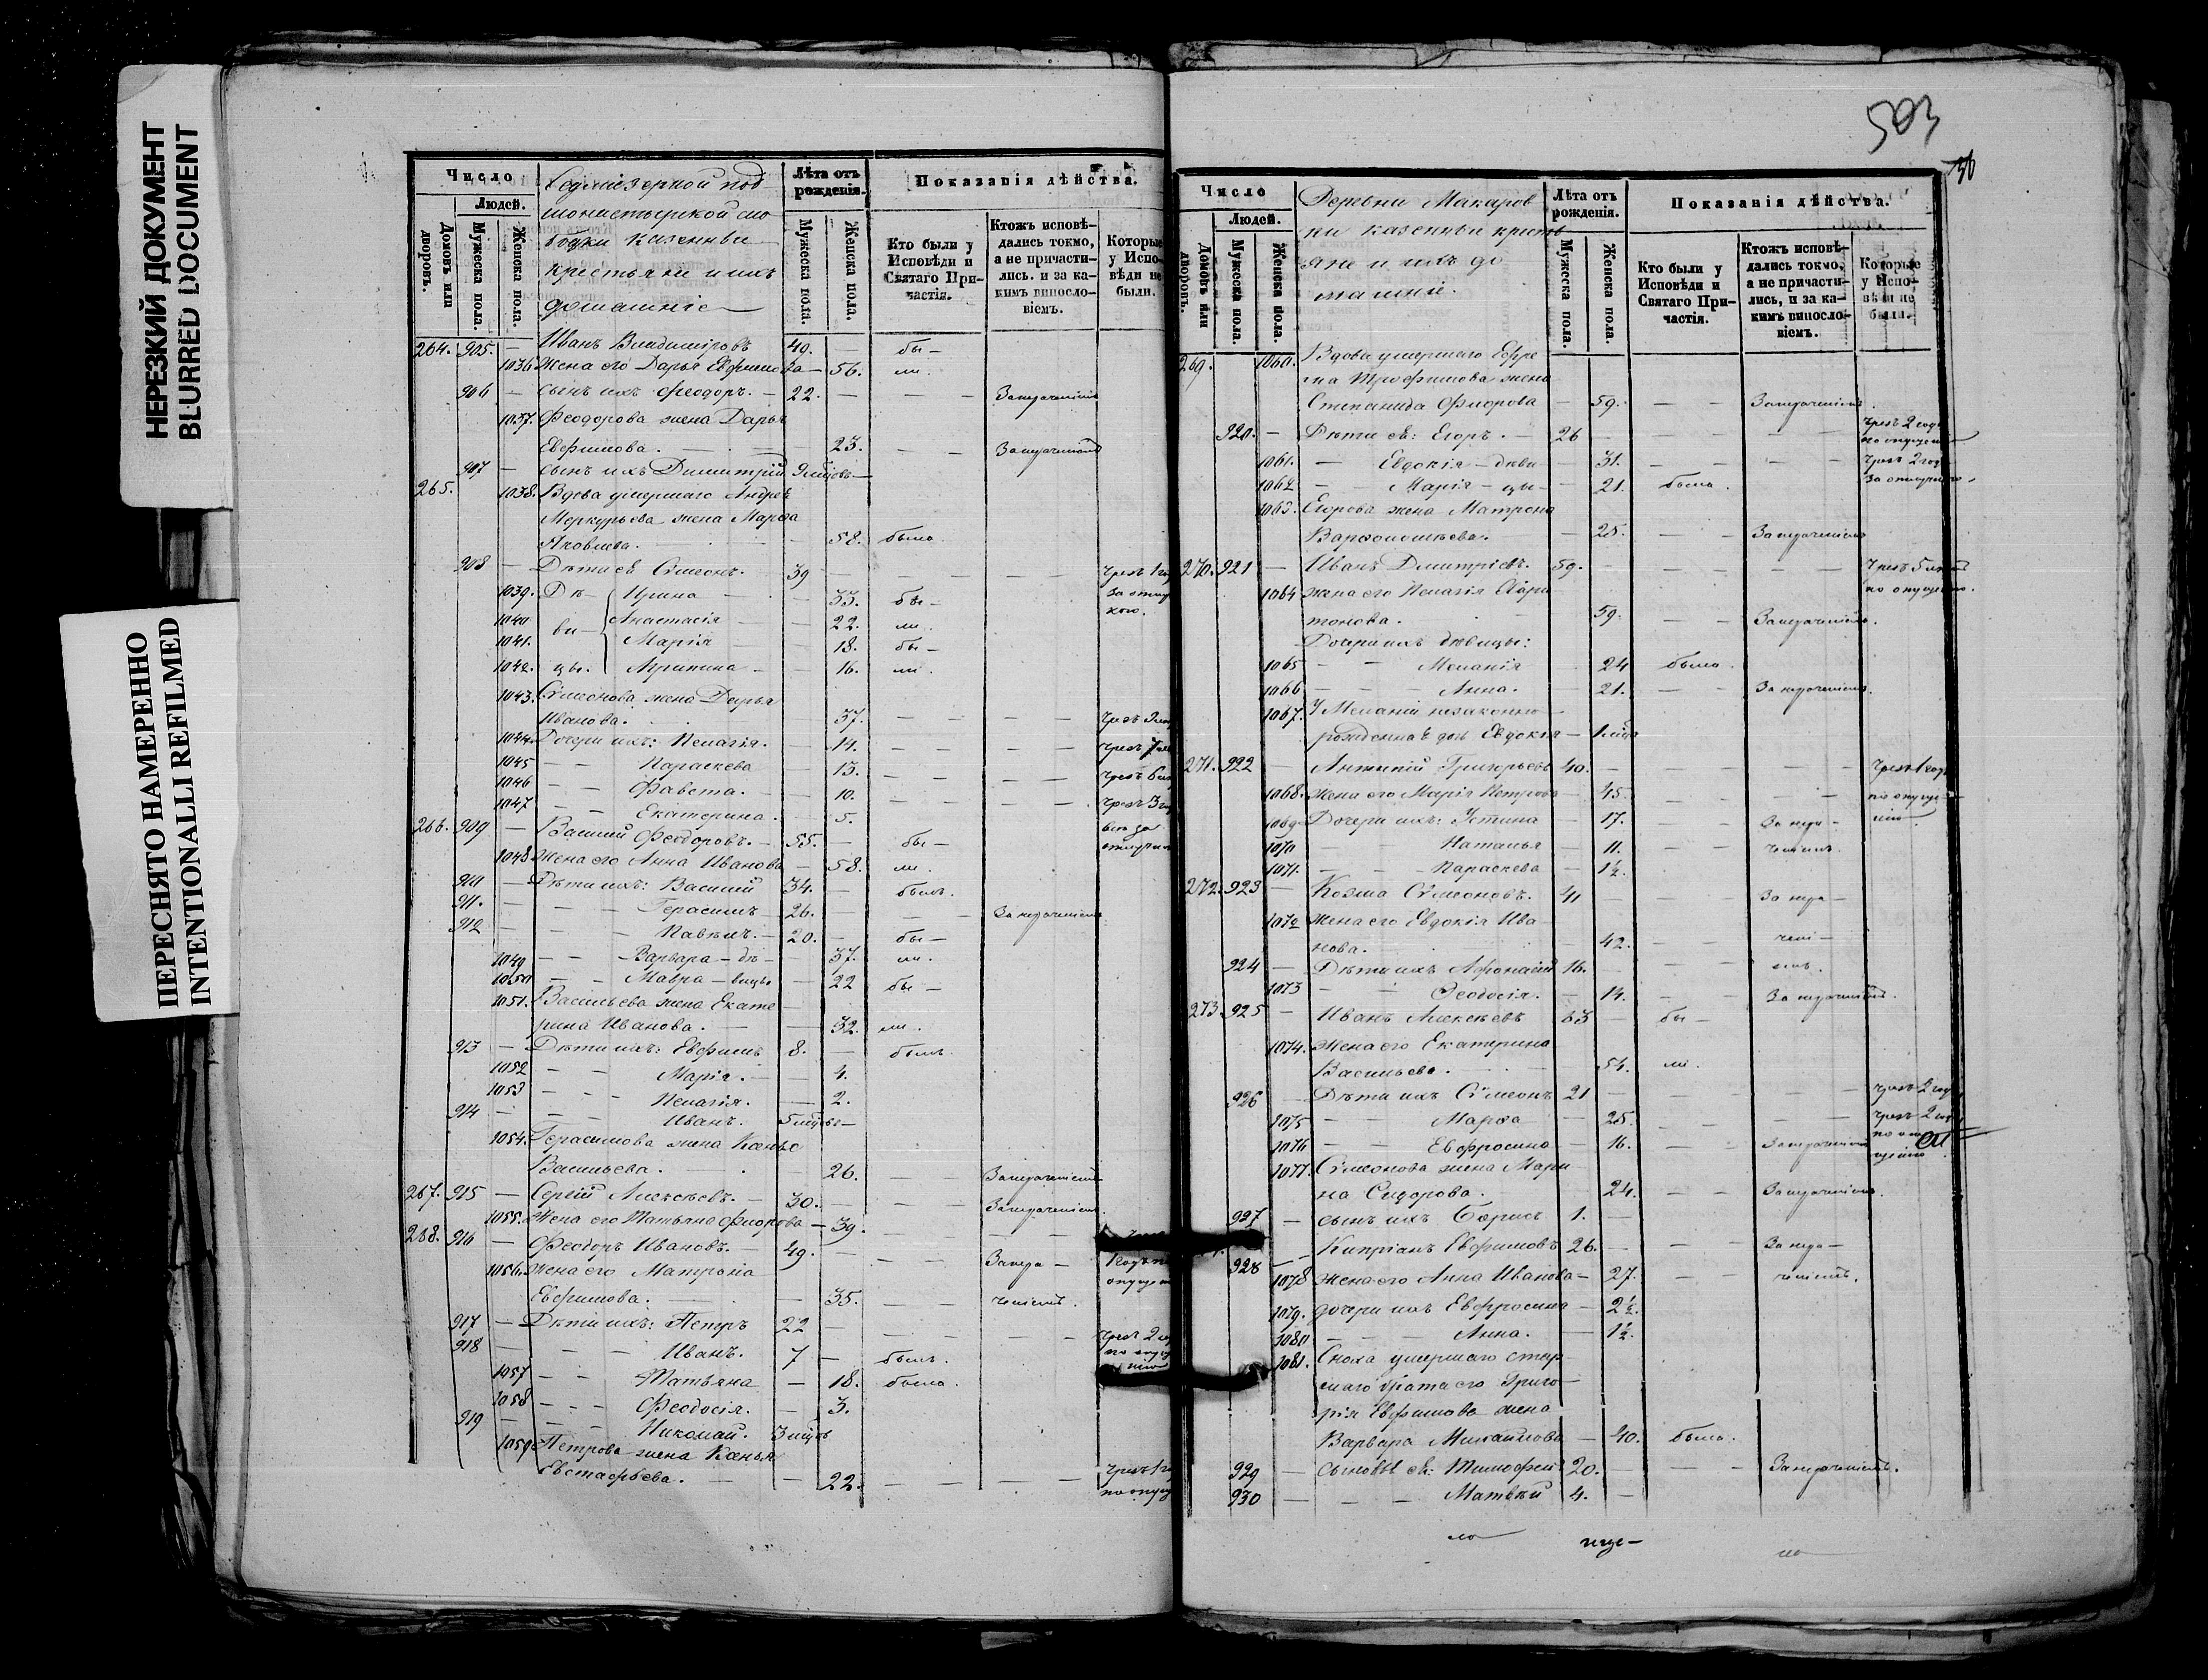 НЕРЕЗКИЙ ДОКУМЕНТ
BLURRED DOCUMENT
ПЕРЕСНЯТО НАМЕРЕННО
INTENTIONALLI REFILMED
Число
Людей.
Домовъ или дворовъ.
Мужеска пола.
Женска пола.
монастырской сло
бодки казенныи
крестьяне и ихъ
домашніе
Лѣта отъ рожденія.
Мужеска пола.
Женска пола.
Показанія дѣйства.
Кто были у Исповѣди и Святаго Причастія.
Ктожъ исповѣдались токмо, а не причастились. и за какимъ винословіемъ.
Которые у Исповѣди не были.
264. 905. — Иванъ Владиміровъ 49. — бы —
1036 Жена его Дарья Евфимова — 56. ли.
906 — сынъ ихъ Феодоръ. — 22. — — — Занерачениемъ
1037. Феодорова жена Дарья
Евфимова. — 23. — — Занерачениемъ
907 — сынъ ихъ Димитрій 9 мцовъ —
265. 1038. Вдова умершаго Андрея
Меркурьева жена Марѳа
Яковлева. — 58. была.
908 — Дѣти ея Сѵмеонъ. 39 — — — —
1039. Дѣ — Ирина — 33. бы —
1040 ви — Анастасія — 22. ли.
1041. Марія — 18. бы —
1042. цы. Агрипина — 16. ли.
1043. Сѵмеонова жена Дарья
Иванова. 37. — — —
1044. Дочери ихъ: Пелагія. — 14. — — —
1045 — — Параскева — 13. — — —
1046 — — Фавста. — 10. — — —
1047 — — Екатерина. — 5.
266. 909 — Василій Феодоровъ. — 55. — бы —
1048 Жена его Анна Иванова — 58. ли.
910 — Дѣти ихъ: Василій 34. — былъ.
911. — — — Герасимъ 26. — — — Занерачениемъ
912 — — — Павелъ. — 20. — бы —
1049 — — Варвара — дѣ — 37. ли.
1050 — — Мавра — вицы 22 бы —
1051. Васильева жена Екате
рина Иванова. — — 32. ли.
913 — Дѣти ихъ: Евфимъ 8. — былъ.
1052 — — Марія. — — 4.
1053 — — — Пелагія. — 2.
914 — — — Иванъ. 5 мцовъ —
1054. Герасимова жена Ксенья
Васильева. — 26. — — Занерачениемъ
267. 915 — Сергій Алексѣевъ. — 30. — — — Занерачениемъ
1055. Жена его Татьяна Флорова — 39. — — —
268. 916 — Феодоръ Ивановъ. — 49. — — — Занера —
1056. Жена его Матрона
Евфимова. — — 35. — — чениемъ.
917 — Дѣти ихъ: Петръ 22 — — — —
918 — — — Иванъ. 7 — былъ.
1057 — — Татьяна — 18. была.
1058 — — — Феодосія. — 3.
919 — — — Николай. 3 мцовъ
1059. Петрова жена Ксенья
Евстафьева. — — 22. — — —
503
Число
Людей.
Домовъ или дворовъ.
Мужеска пола.
Женска пола.
Деревни Макаров
ки казенныи кресть
яне и ихъ до
машніе.
Лѣта отъ рожденія.
Мужеска пола.
Женска пола.
Показанія дѣйства.
Кто были у Исповѣди и Святаго Причастія.
Ктожъ исповѣдались токмо, а не причастились, и за какимъ винословіемъ.
Которые у Исповѣди не были.
269. 1060. Вдова умершаго Ефре
ма Трофимова жена
Степанида Флорова — 59. — — Занерачениемъ.
920. — Дѣти ея: Егоръ. — 26 — — — — Чрезъ 2 года
1061. — Евдокія — дѣви — 31. — — — — Чрезъ 2 года
1062 — — Марія — цы — 21. была.
1063. Егорова жена Матрона
Варѳоломѣева. — 25. — — Занерачениемъ
270. 921 — Иванъ Димитріевъ. 59. — — — — Чрезъ 5 лѣтъ
1064 жена его Пелагія Хари
тонова. 59. — — Занерачениемъ.
Дочери ихъ дѣвицы:
1065 — — Меланія 24 была.
1066 — — — Анна. — 21. — — Занерачениемъ.
1067. У Меланіи незаконно
рожденна дочь Евдокія — 1 мца
271. 922 — Антипій Григорьевъ 40. — — — Чрезъ 1 годъ
1068. Жена его Марія Петрова — 45. — — —
1069 Дочери ихъ: Устина — 17. — — Занера —
1070 — — Наталья — 11. — — чениемъ.
1071. — — — Параскева — 1½.
272. 923 — Козма Сѵмеоновъ. 41 — — — Занера —
1072 Жена его Евдокія Ива
нова. 42. — — чені —
924 — Дѣти ихъ Афонасій 16. — — — емъ.
1073 — — Феодосія. — 14. — — Занерачениемъ.
273. 925 — Иванъ Алексѣевъ 63 — бы —
1074. Жена его Екатерина
Васильева. — 54. ли.
926 — Дѣти ихъ Сѵмеонъ 21 — — — — Чрезъ 2 года
1075 — — Марѳа — 25. — — — Чрезъ 2 года
1076 — — Евфросина — 16. — — Занерачениемъ
1077. Сѵмеонова жена Мари
на Сидорова. — 24. — — Занерачениемъ.
927 — сынъ ихъ Борисъ 1. —
928 — Кипріанъ Евфимовъ 26. — — — Занера —
1078 Жена его Анна Иванова — 27. — — чениемъ.
1079. дочери ихъ Евфросина — 2½.
1080 — — — Анна. — 1½.
1081. Сноха умершаго стар
шаго брата его Григо
рія Евфимова жена
Варвара Михайлова — 40. была.
929 — сыновья ея: Тимофей 20. — — — Занерачениемъ.
930 — — — Матвѣй 4. —